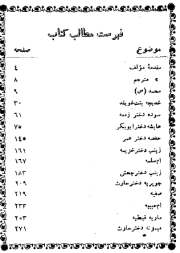 فهرست مطالب کتاب
موضوع صفحه
مقدمهٔ مؤلف ۴
« مترجم ۸
محمد (ص) ۹
خدیجه بنت خویلد ۳۰
سوده دختر زمعه ۶۱
عایشه دختر ابوبکر ۷۵
حفصه دختر عمر ۱۴۵
زینب دختر خزیمه ۱۶۱
ام سلمه ۱۶۷
زینب دختر جحش ۱۸۳
جویریه دختر حارث ۲۰۹
صفیه ۲۱۹
ام حبیبه ۲۳۳
ماریه قبطیه
میمونه دختر حارث ۲۷۱